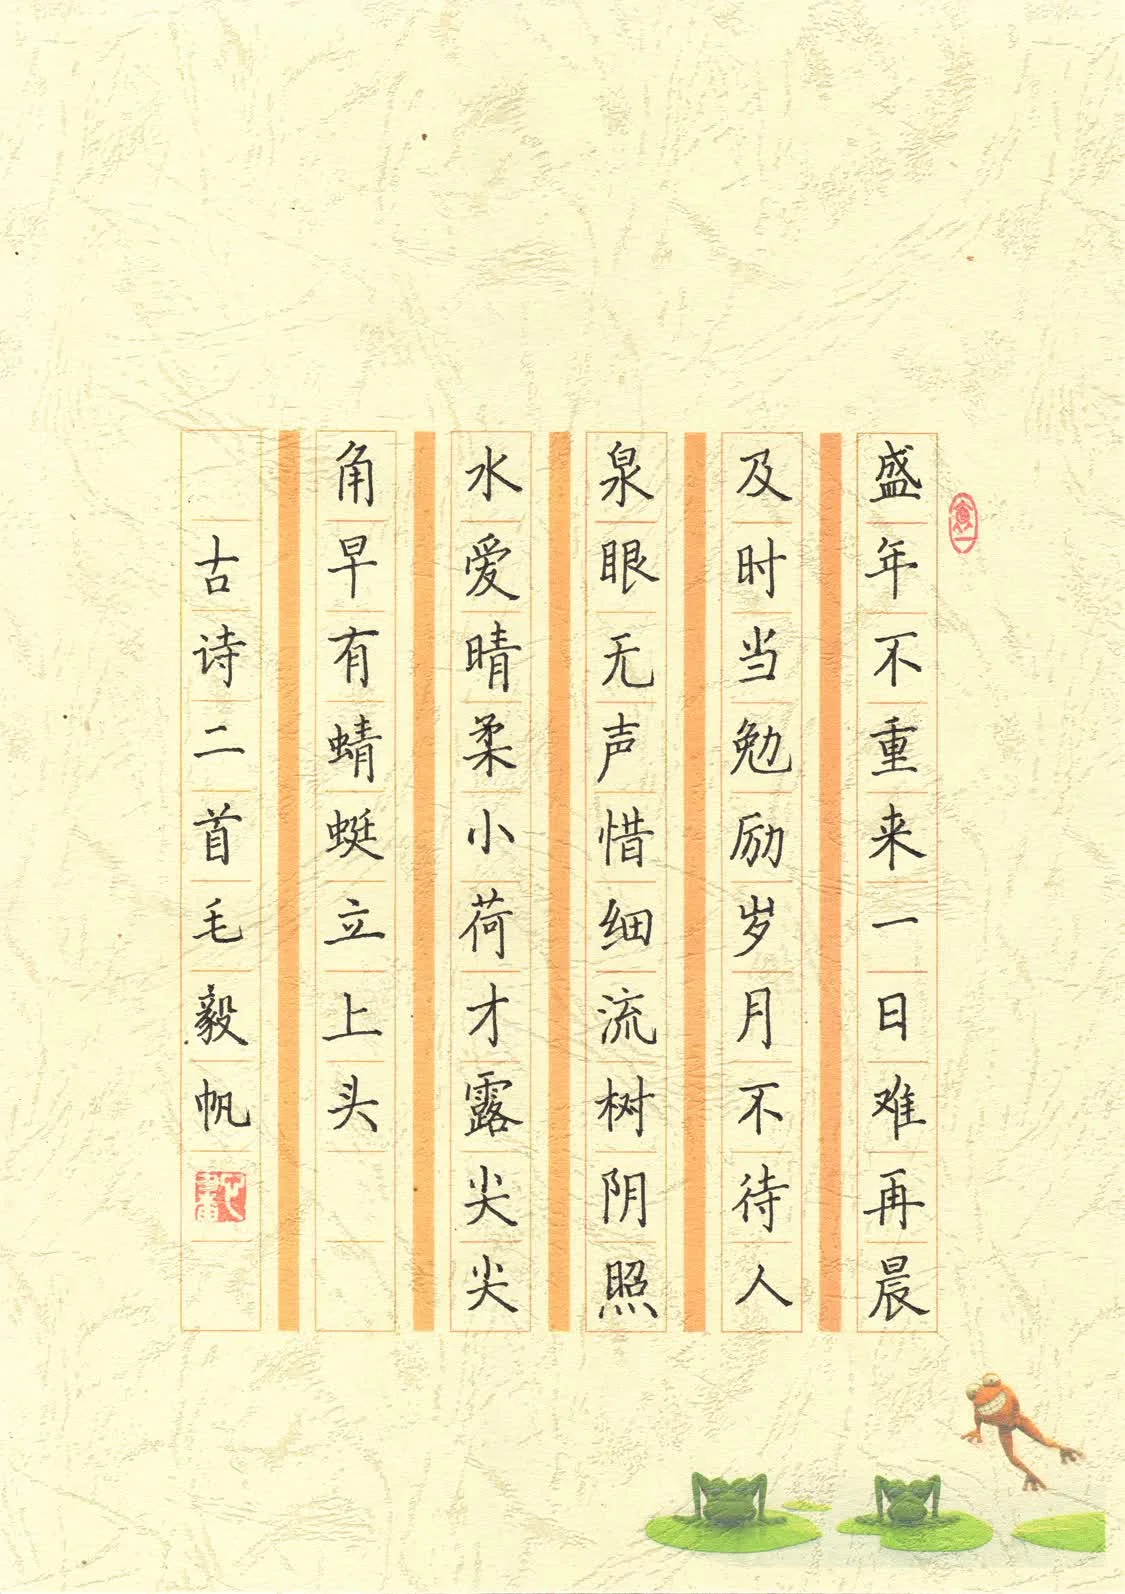 盛年不重来一日难再晨
及时当勉励岁月不待人
泉眼无声惜细流树阴照
水爱晴柔小荷才露尖尖
角早有蜻蜓立上头
古诗二首毛毅帆